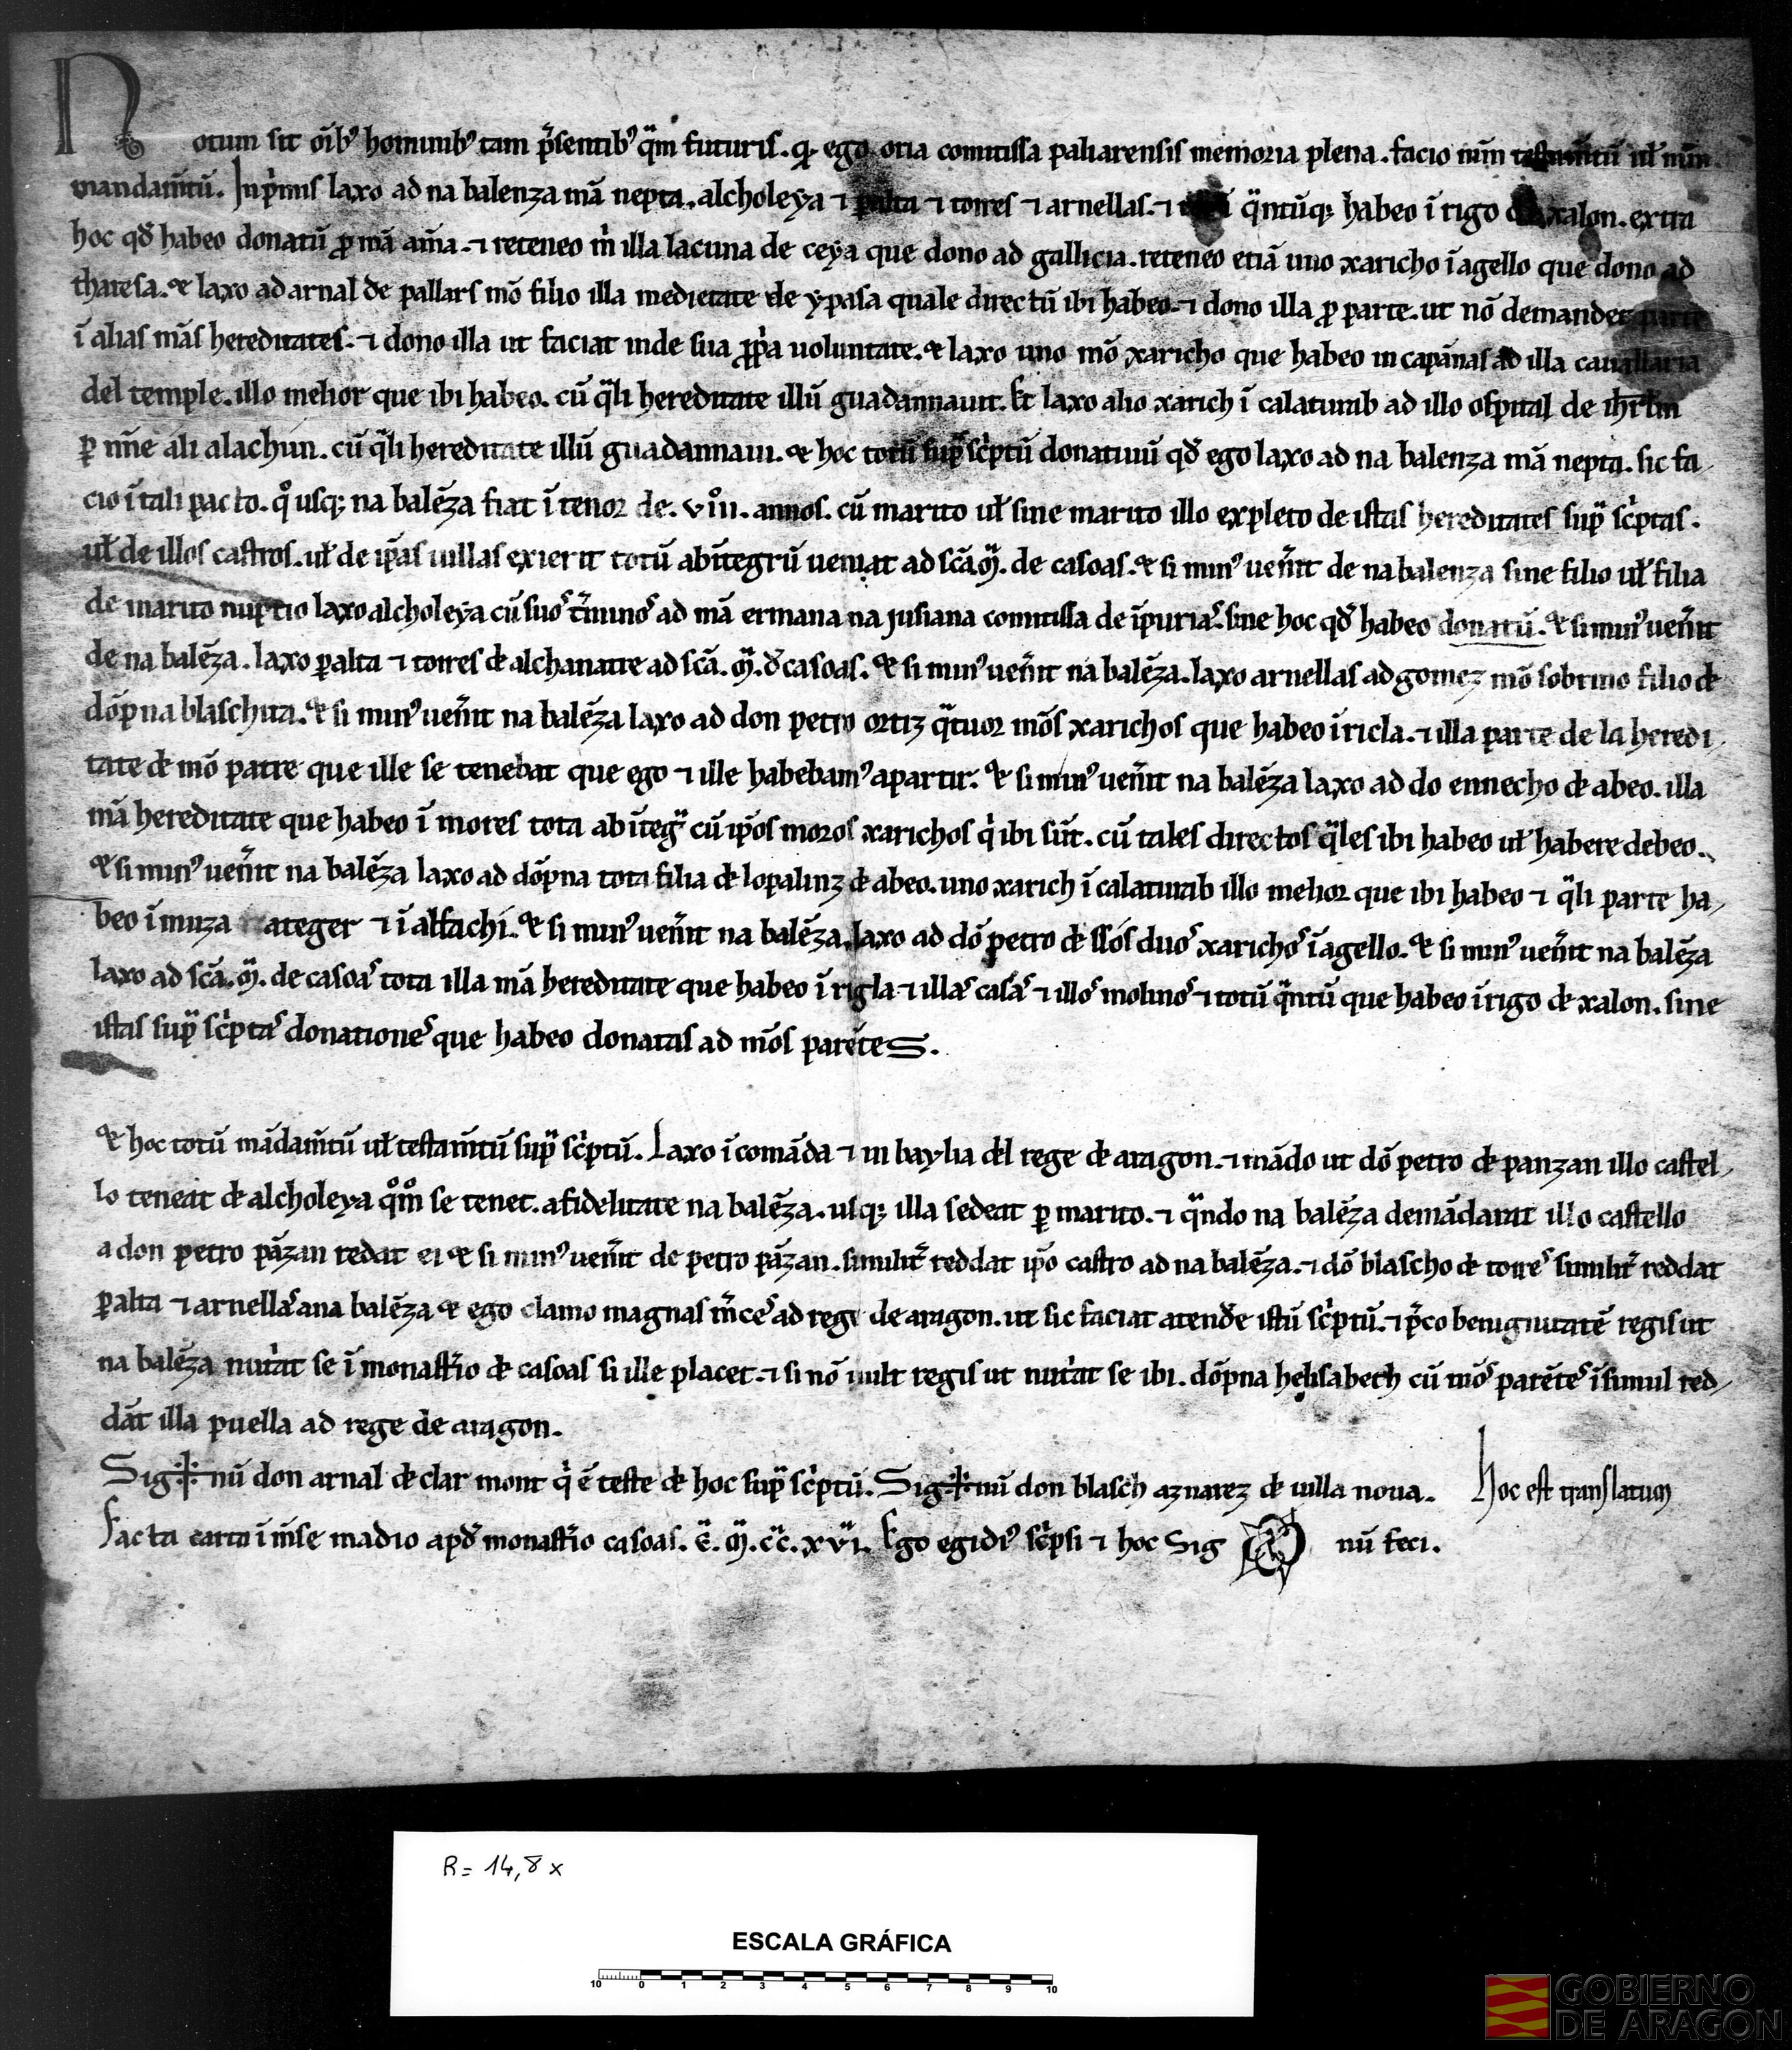 Notum sit oībꝰ hominibꝰ tam p̄sentibꝰ q̄m futuris. qͥ ego oria comitissa paliarensis memoria plena. facio mm̄ testam̄tū ul̄ mm̄
mandam̄tū. Inp̄mis laxo ad na balenza mā nepta. alcholeya ⁊ palta ⁊ torres ⁊ arnellas. ⁊ q̄ntūqꝫ habeo ī rigo xalon. extra
hoc qd̄ habeo donatū ꝓ mā aīa. ⁊ reteneo m̄ illa lacuna de ceya que dono ad gallicia. reteneo etiā uno xaricho īagello que dono ad
tharesa. & laxo ad arnal de pallars mō filio illa medietate de ypasa quale directū ibi habeo. ⁊ dono illa ꝓ parte. ut nō demandet parte
ī alias mās hereditates. ⁊ dono illa ut faciat inde sua ꝓp̄a uoluntate. & laxo uno mō xaricho que habeo in capānas ad illa cauallaria
del temple. illo melior que ibi habeo. cū q̄li hereditate illū guadannauit. Et laxo alio xarich ī calatuiab ad illo ospital de ihrl̄m
ꝑ nn̄e ali alachun. cū q̄li hereditate illū guadannaui. & hoc totū sup̄ sc̄ptū donatiuū qd̄ ego laxo ad na balenza mā nepta. sic fa
cio ī tali pacto. qͦ usqꝫ na balēza fiat ī tenor de. vııı. annos. cū marito ul̄ sine marito illo expleto de istas hereditates sup̄ sc̄ptas.
ul̄ de illos castros. ul̄ de ip̄as uillas exierit totū abītegrū ueniat ad sc̄ā. m̄. de casoas. & si minꝰ uen̄it de na balenza sine filio ul̄ filia
de marito nuptio laxo alcholeya cū suoˢ t̄minoˢ ad mā ermana na jusiana comitissa de īpuriaˢ. sine hoc qd̄ habeo donatū. & si minꝰ uen̄it
de na balēza. laxo ꝑalta ⁊ torres de alchanatre ad sc̄ā. m̄. d̄ casoas. & si minꝰ uen̄it na balēza. laxo arnellas ad gomez mō sobrino filio de
dōpna blaschita. & si minꝰ uen̄it na balēza laxo ad don petro ortiz q̄tuor mōs xarichos que habeo ī ricla. ⁊ illa parte de la heredi
tate de mō patre que ille se tenebat que ego ⁊ ille habebamꝰ apartir. & si minꝰ uen̄it na balēza laxo ad do ennecho de abeo. illa
mā hereditate que habeo ī mores tota ab īteḡ cū ip̄os moros xarichos q̄ ibi sūt. cū tales directos q̄les ibi habeo ul̄ habere debeo.
& si minꝰ uen̄it na balēza laxo ad dōpna tota filia de lopalinz de abeo. uno xarich ī calatuiab illo melior que ibi habeo ⁊ q̄li parte ha
beo ī muza ateger ⁊ ī alfachi. & si minꝰ uen̄it na balēza. laxo ad dō petro de sl̄os duoˢ xarichoˢ īagello. & si minꝰ uen̄it na balēza
laxo ad sc̄ā. m̄. de casoaˢ tota illa mā hereditate que habeo ī rigla ⁊ illaˢ casāˢ ⁊ illoˢ molinoˢ ⁊ totū q̄ntū que habeo īrigo de xalon. sine
istas sup̄ sc̄ptaˢ donationeˢ que habeo donatas ad mōs parētes.
& hoc totū mādam̄tū ul̄ testam̄tū sup̄ sc̄ptū. Laxo ī comāda ⁊ in baylia del rege de aragon. ⁊ mādo ut dō petro de panzan illo castel
lo teneat de alcholeya qͦmͦ se tenet. a fidelitate na balēza. usqꝫ illa sedeat ꝑ marito. ⁊ q̄ndo na balēza demādarat illo castello
a don petro pāzan redat ei & si minꝰ uen̄it de petro pāzan. similit̄ reddat ip̄o castro ad na balēza. ⁊ dō blascho de torreˢ similit̄ reddat
ꝑalta ⁊ arnellaˢ ana balēza & ego clamo magnas m̄ceˢ ad rege de aragon. ut sic faciat atend̄e istū sc̄ptū. ⁊ p̄co benignitatē regis ut
na balēza nut̄at se ī monast̄io de casoas si ille placet. ⁊ si nō uult regis ut nut̄at se ibi. dōpna helisabeth cū mōˢ parēteˢ īsimul red
dāt illa puella ad rege de aragon.
Sig nū don arnal de clar mont q̄ ē teste de hoc sup̄ sc̄ptū. Sig nū don blasch aznarez de uilla noua. Hoc est translatum
Facta carta ī m̄se madio apd̄ monast̄io casoas. ē. m̄. c̄c̄. xvı. Ego egidiꝰ sc̄psi ⁊ hoc Sig nū feci.
R= 14,8 x
ESCALA GRÁFICA
10 0 1 2 3 4 5 6 7 8 9 10
GOBIERNO
DE ARAGON